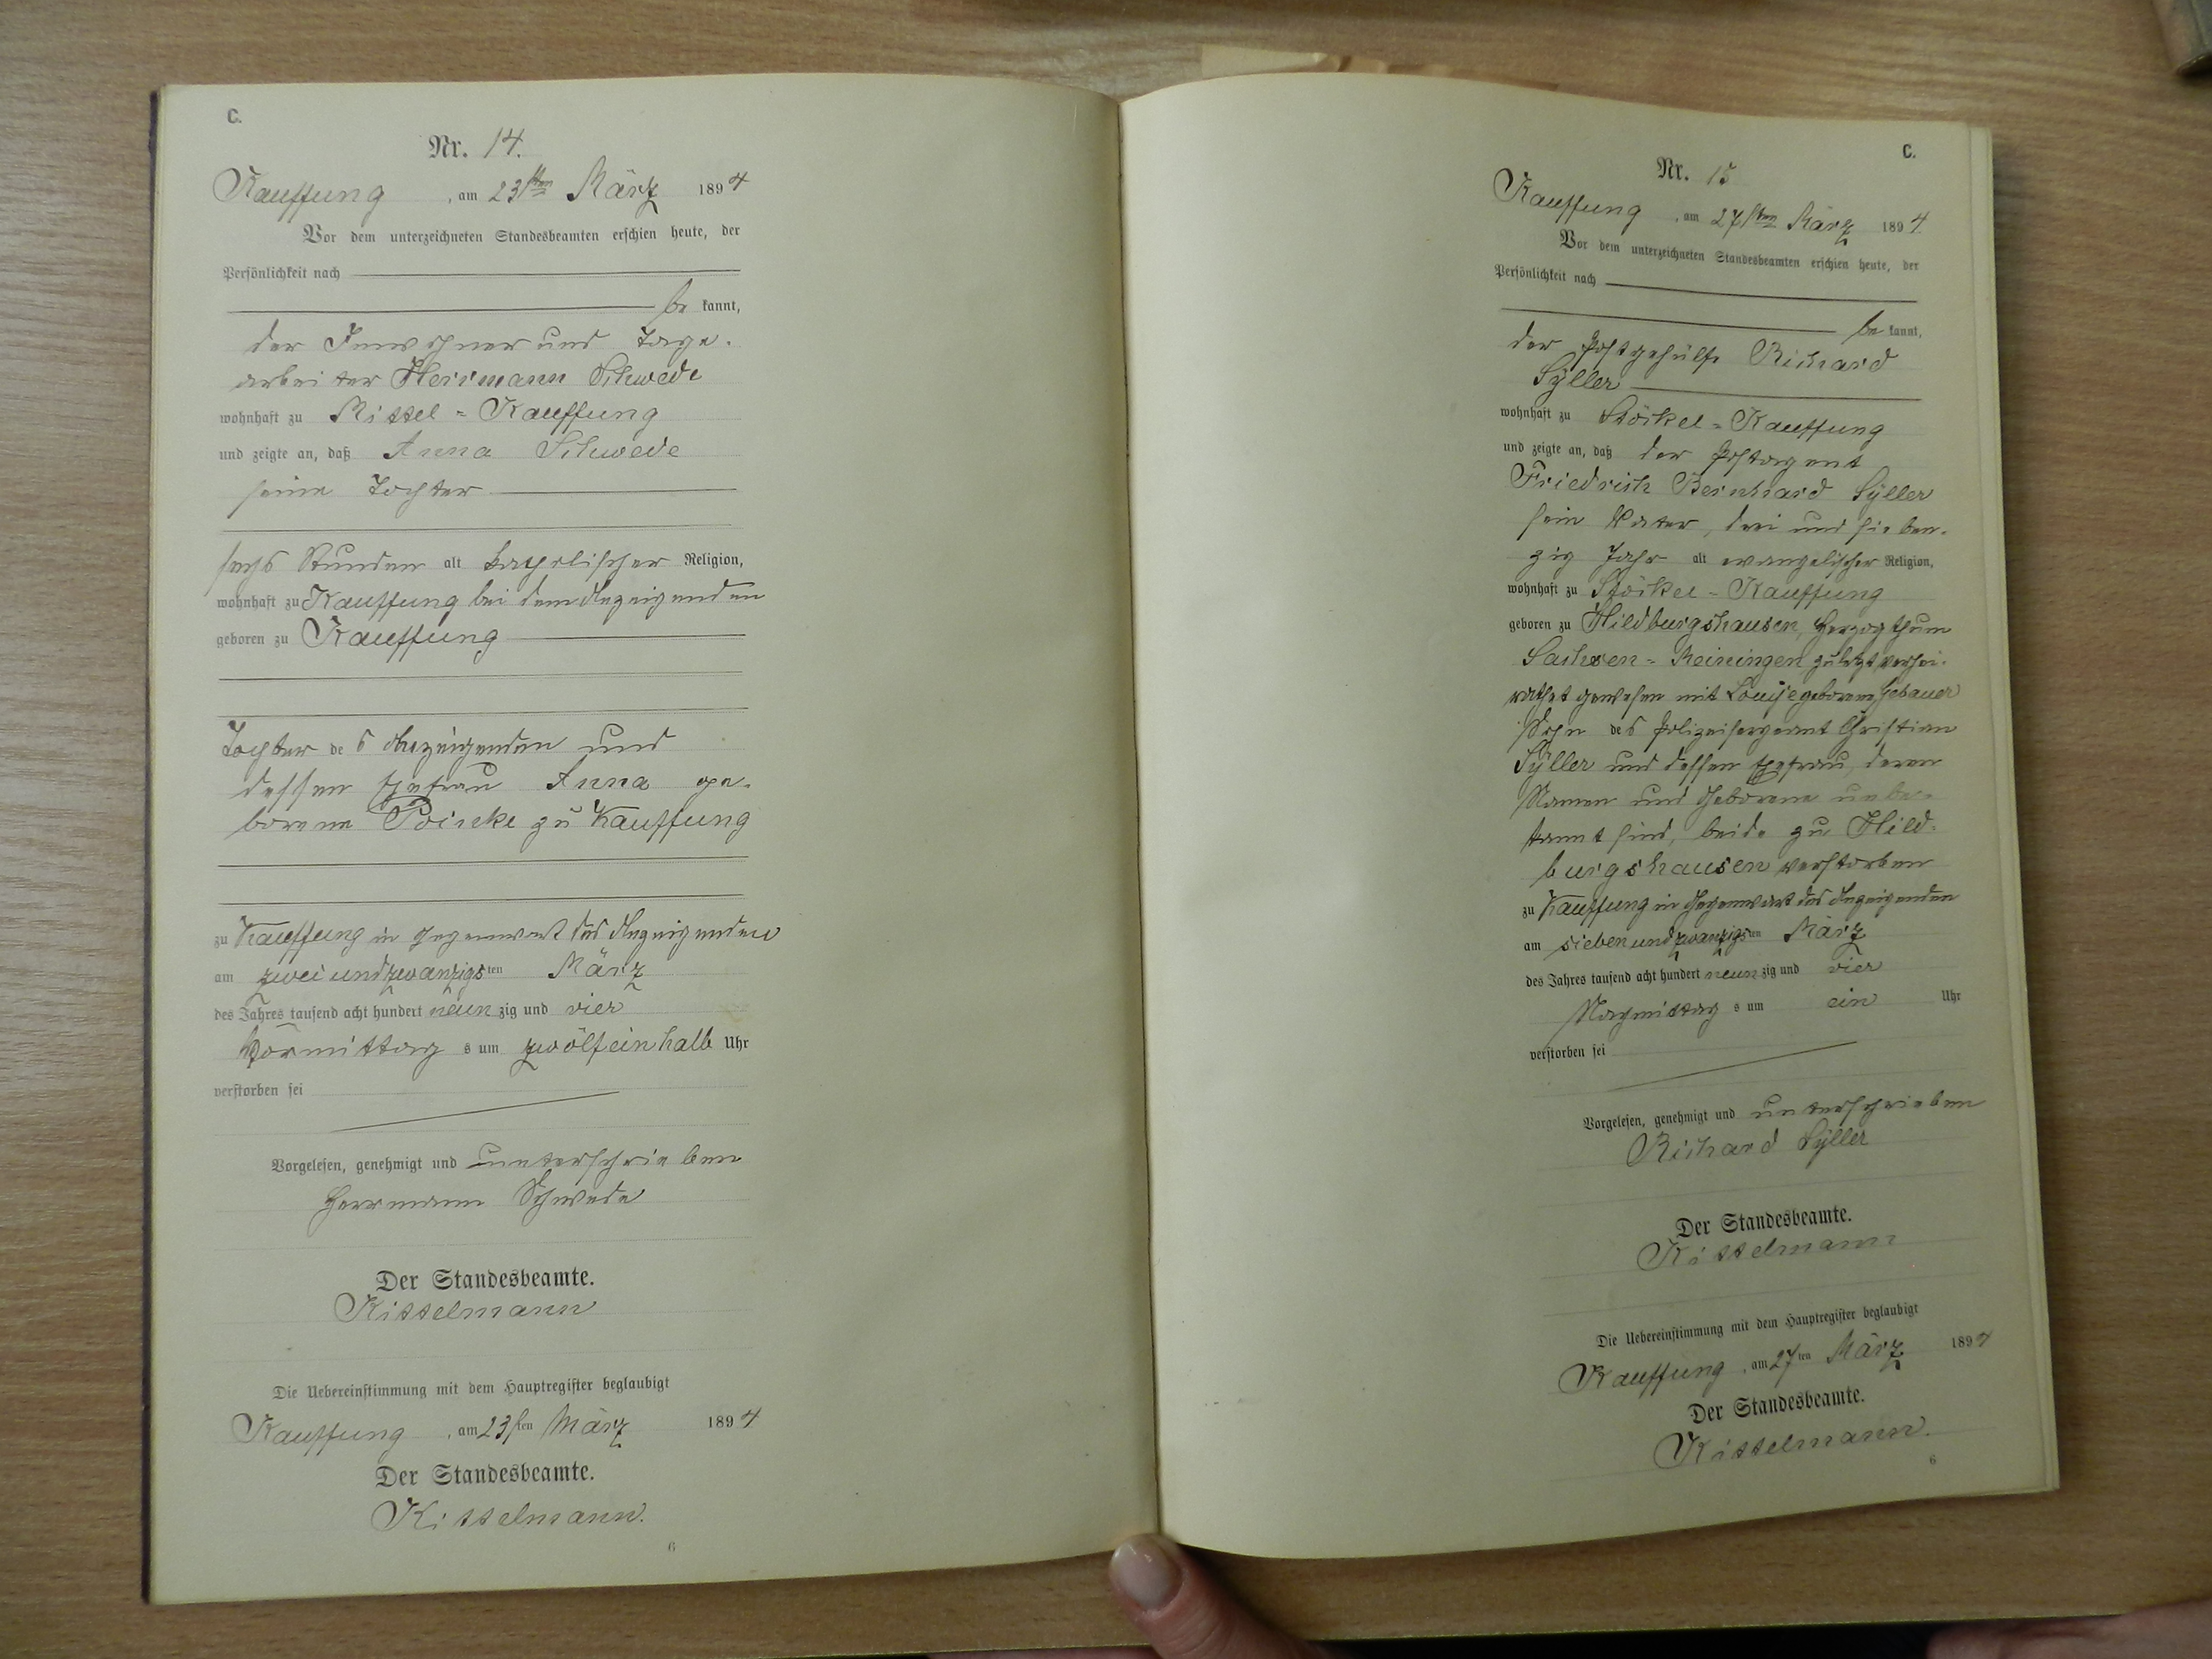 C.
Nr. 14.
Kauffung, am 23sten März 1894
Vor dem unterzeichneten Standesbeamten erschien heute, der
Persönlichkeit nach
be kannt,
der Inwohner und Tage-
arbeiter Herrmann Schwede
wohnhaft zu Mittel-Kauffung
und zeigte an, daß Anna Schwede
seine Tochter
sechs Stunden alt katholischer Religion,
wohnhaft zu Kauffung bei dem Anzeigenden
geboren zu Kauffung
Tochter des Anzeigenden und
dessen Ehefrau Anna ge-
borene zu Kauffung
zu Kauffung in Gegenwart des Anzeigenden
am zweiundzwanzigsten März
des Jahres tausend acht hundert neunzig und vier
Vormittags um zwölfeinhalb Uhr
verstorben sei
Vorgelesen, genehmigt und unterschrieben
Herrmann Schwede
Der Standesbeamte.
Kittelmann
Die Uebereinstimmung mit dem Hauptregister beglaubigt
Kauffung, am 23sten März 1894
Der Standesbeamte.
Kittelmann.
6
C.
Nr. 15
Kauffung, am 27sten März 1894.
Vor dem unterzeichneten Standesbeamten erschien heute, der
Persönlichkeit nach
be kannt,
der Postgehülfe Richard
Syller
wohnhaft zu Stöckel-Kauffung
und zeigte an, daß der Postagent
Friedrich Bernhard Syller
sein Vater, drei und sieben-
zig Jahr alt evangelischer Religion,
wohnhaft zu Stöckel-Kauffung
geboren zu Hildburgshausen, Herzogthum
Sachsen-Meiningen zuletzt verhei-
rathet gewesen mit Louise geborene Gebauer
Sohn des Polizeisergeant Christian
Syller und dessen Ehefrau, deren
Namen und Geborene unbe-
kannt sind, beide zu Hild-
burgshausen verstorben
zu Kauffung in Gegenwart des Anzeigenden
am siebenundzwanzigsten März
des Jahres tausend acht hundert neunzig und vier
Nachmittags um ein Uhr
verstorben sei
Vorgelesen, genehmigt und unterschrieben
Richard Syller
Der Standesbeamte.
Kittelmann
Die Uebereinstimmung mit dem Hauptregister beglaubigt
Kauffung, am 27ten März 1894
Der Standesbeamte.
Kittelmann.
6